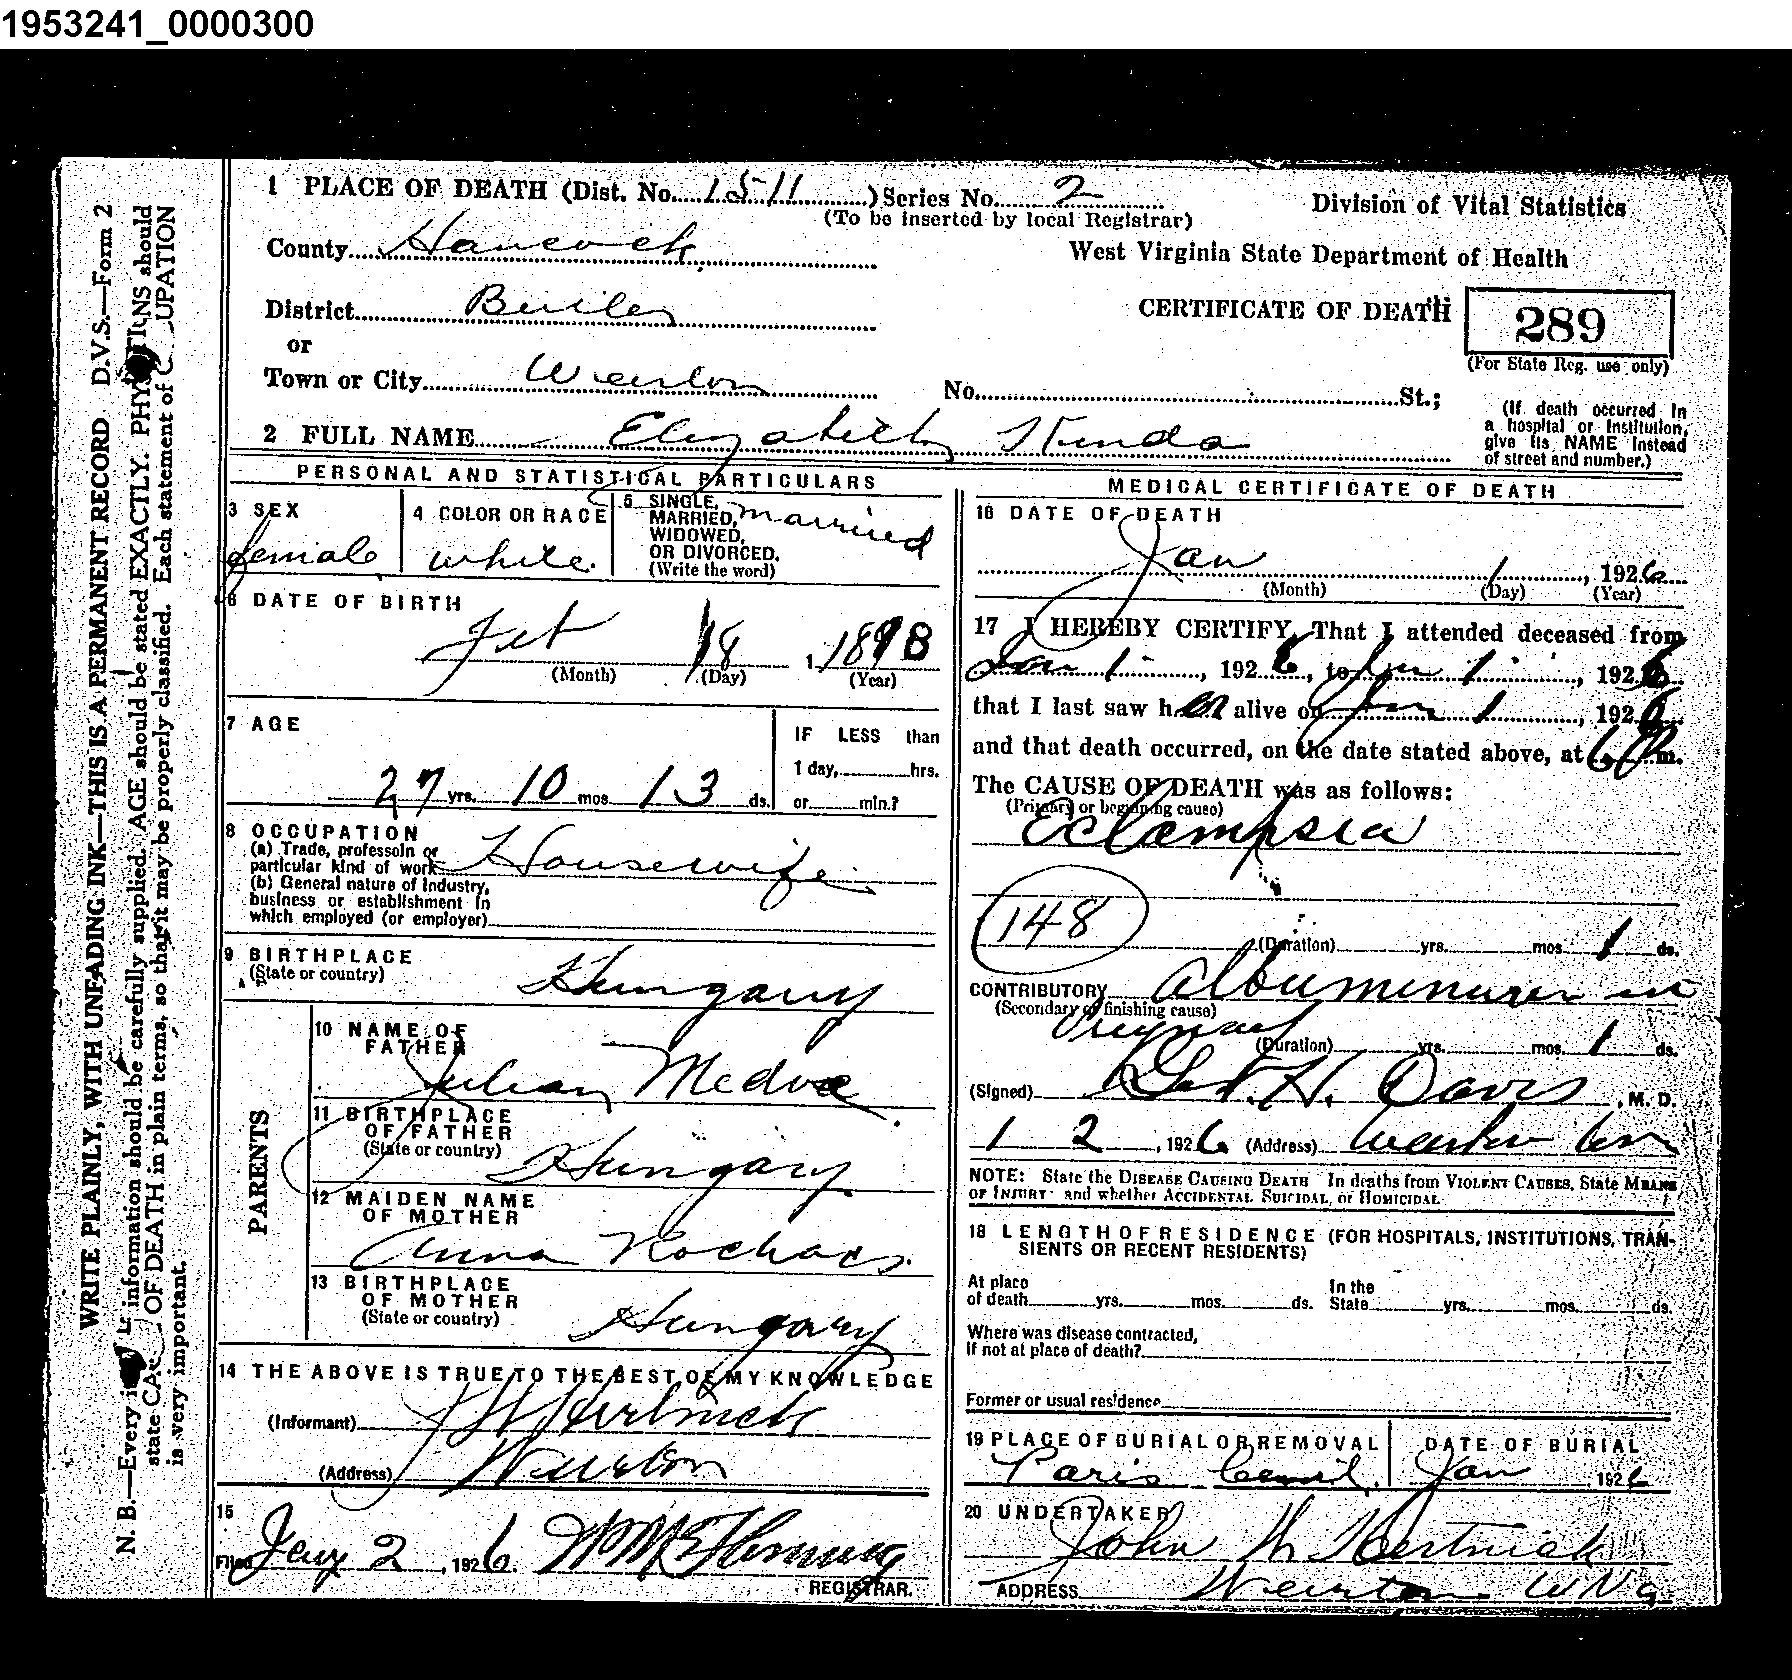 1953241_0000300
WRITE PLAINLY, WITH UNFADING INK—THIS IS A PERMANENT RECORD D.V.S.—Form 2
N. B.—Every information should be carefully supplied. AGE should be stated EXACTLY. PHYS should
state OF DEATH in plain terms, so that it may be properly classified. Each statement of UPATION
is very important.
1 PLACE OF DEATH (Dist. No. 1511) Series No. 2
(To be inserted by local Registrar)
Division of Vital Statistics
County Hancock
West Virginia State Department of Health
District Butler
CERTIFICATE OF DEATH
289
(For State Reg. use only)
or
Town or City Weirton
No. St.;
(If death occurred in
a hospital or institution,
give its NAME instead
of street and number.)
2 FULL NAME Elizabeth
PERSONAL AND STATISTICAL PARTICULARS
3 SEX
female
4 COLOR OR RACE
white
5 SINGLE,
MARRIED,
WIDOWED,
OR DIVORCED,
(Write the word)
married
6 DATE OF BIRTH
18 1898
(Month) (Day) (Year)
7 AGE
27 yrs. 10 mos 13 ds.
IF LESS than
1 day, hrs.
or min.?
8 OCCUPATION
(a) Trade, professoin or
particular kind of work Housewife
(b) General nature of Industry,
business or establishment in
which employed (or employer)
9 BIRTHPLACE
(State or country)
Hungary
PARENTS
10 NAME OF
FATHER
Julian
11 BIRTHPLACE
OF FATHER
(State or country)
Hungary
12 MAIDEN NAME
OF MOTHER
Anna
13 BIRTHPLACE
OF MOTHER
(State or country)
Hungary
14 THE ABOVE IS TRUE TO THE BEST OF MY KNOWLEDGE
(Informant)
(Address) Weirton
15
Filed Jany 2, 1926.
REGISTRAR.
MEDICAL CERTIFICATE OF DEATH
16 DATE OF DEATH
Jan 1, 1926
(Month) (Day) (Year)
17 I HEREBY CERTIFY, That I attended deceased from
Jan 1, 1926, to Jan 1, 1926
that I last saw her alive on Jan 1, 1926
and that death occurred, on the date stated above, at 6 P m.
The CAUSE OF DEATH was as follows:
(Primary or beginning cause)
Eclampsia
148
(Duration) yrs. mos. 1 ds.
CONTRIBUTORY in
(Secondary or finishing cause)
(Duration) yrs. mos. 1 ds.
(Signed) H. Davis, M. D.
1 2, 1926 (Address)
NOTE: State the DISEASE CAUSING DEATH In deaths from VIOLENT CAUSES, State MEANS
OF INJURY and whether ACCIDENTAL SUICIDAL, or HOMICIDAL
18 LENGTH OF RESIDENCE (FOR HOSPITALS, INSTITUTIONS, TRAN-
SIENTS OR RECENT RESIDENTS)
At place
of death yrs. mos. ds.
In the
State yrs. mos. ds.
Where was disease contracted,
If not at place of death?
Former or usual residence
19 PLACE OF BURIAL OR REMOVAL
Paris
DATE OF BURIAL
Jan 1926
20 UNDERTAKER
John
ADDRESS Weirton